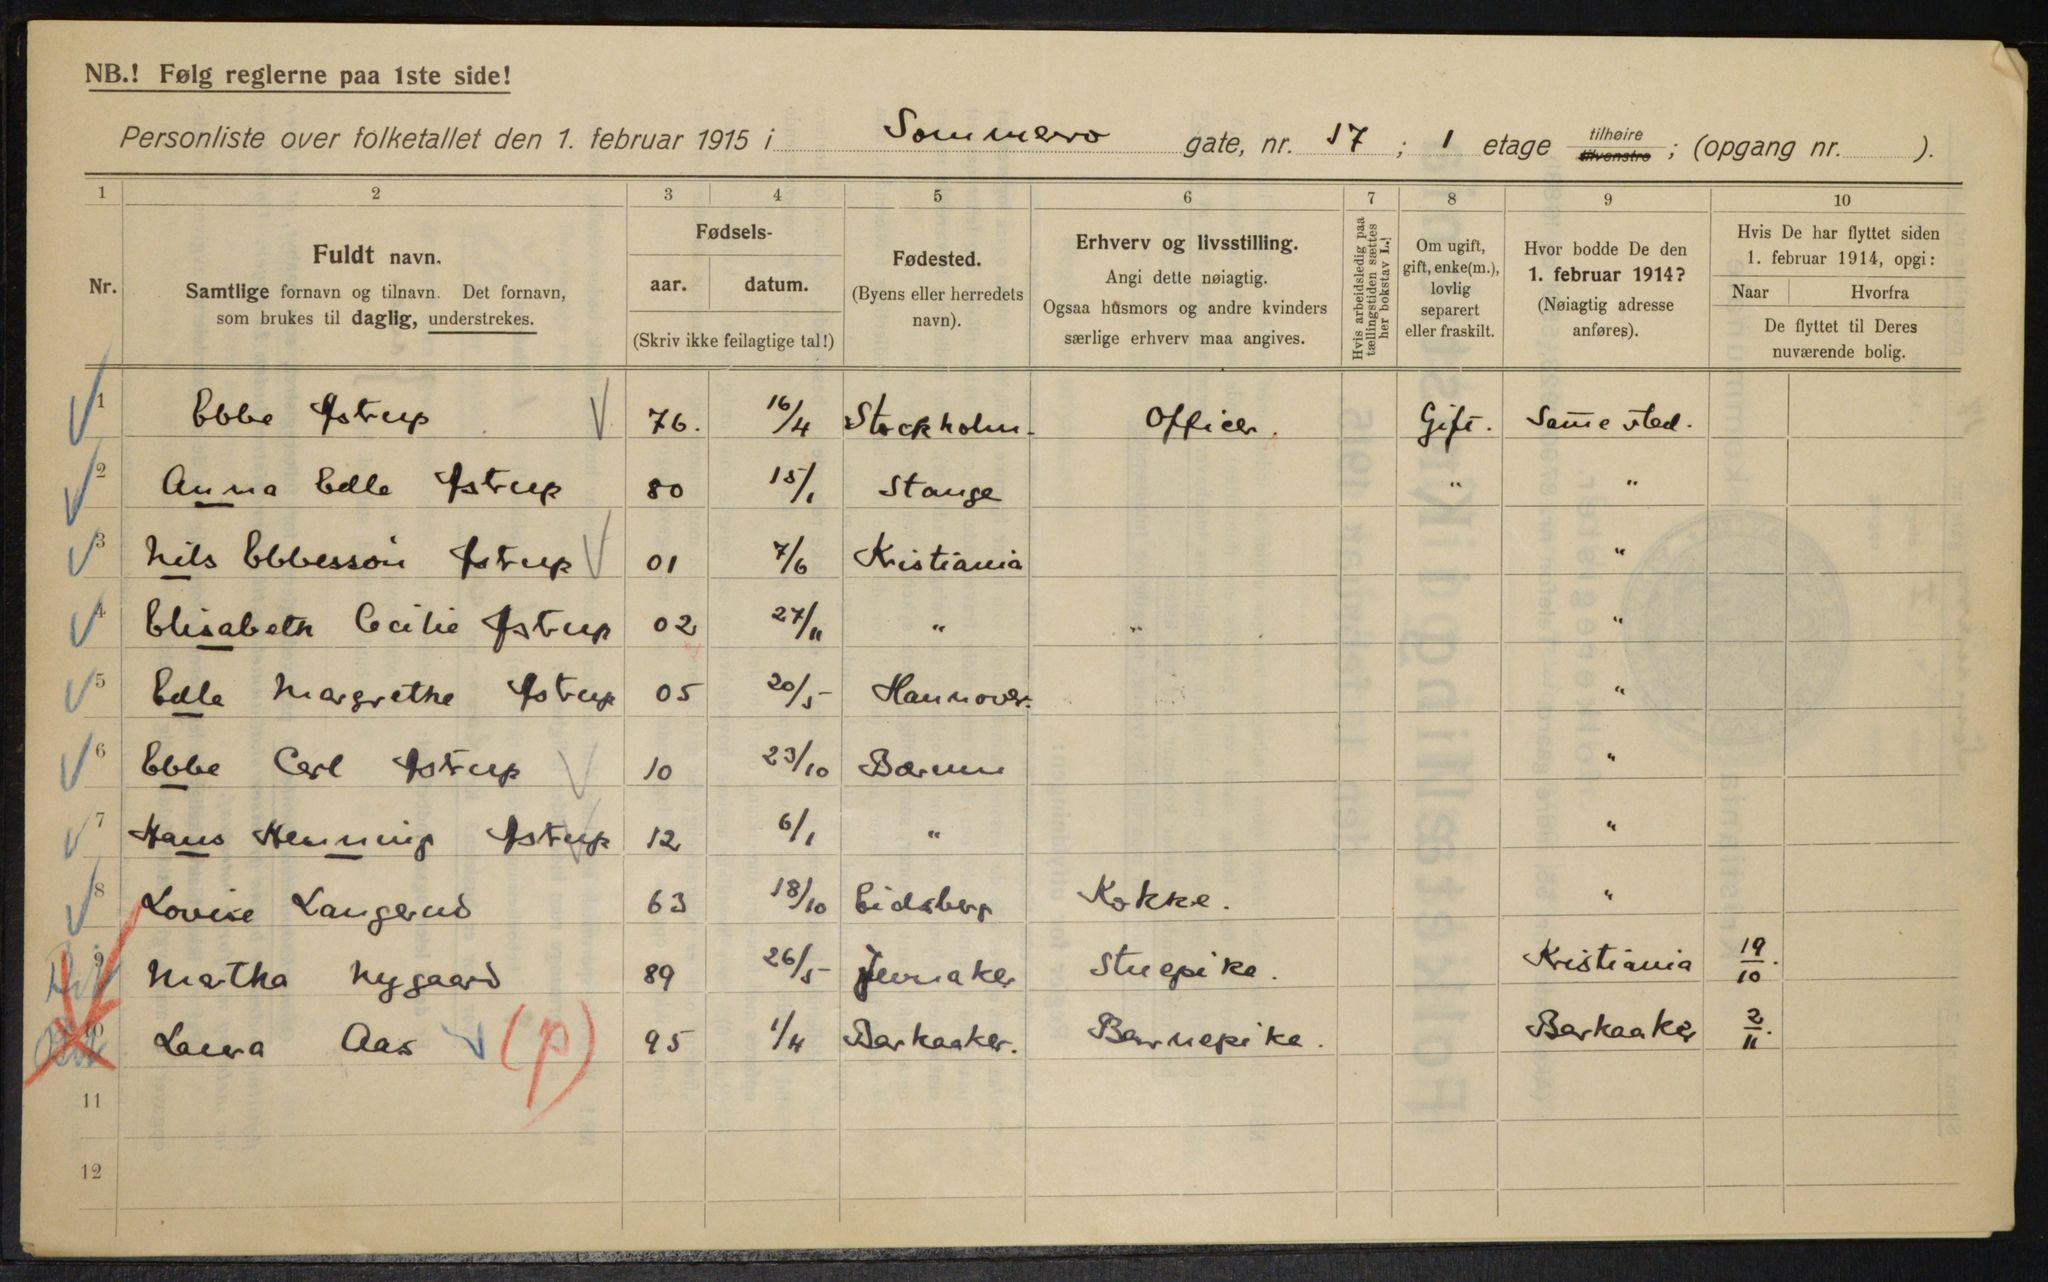 NB.! Følg reglerne paa 1ste side!
Personliste over folketallet den 1. februar 1915 i Sommero gate, nr. 17 ; 1 etage tilhøire tilvenstre ; (opgang nr. ).
1 2 3 4 5 6 7 8 9 10
Nr.
Fuldt navn.
Samtlige fornavn og tilnavn. Det fornavn,
som brukes til daglig, understrekes.
Fødsels-
aar. datum.
(Skriv ikke feilagtige tal!)
Fødested.
(Byens eller herredets
navn).
Erhverv og livsstilling.
Angi dette nøiagtig.
Ogsaa husmors og andre kvinders
særlige erhverv maa angives.
Hvis arbeidsledig paa
tællingstiden sættes
her bokstav L.!
Om ugift,
gift, enke(m.),
lovlig
separert
eller fraskilt.
Hvor bodde De den
1. februar 1914?
(Nøiagtig adresse
anføres).
Hvis De har flyttet siden
1. februar 1914, opgi:
Naar Hvorfra
De flyttet til Deres
nuværende bolig.
1 Ebbe Astrup 76. 16/4 Stockholm. Officer. Gift. Samme sted.
2 Anna Edle Astrup 80 15/1 Stange " "
3 Nils Ebbessøn Astrup 01 7/6 Kristiania "
4 Elisabeth Cecilie Astrup 02 27/11 " " "
5 Edle Margrethe Astrup 05 20/5 Hannover. "
6 Ebbe Carl Astrup 10 23/10 Bærum "
7 Hans Henning Astrup 12 6/1 " "
8 Lovise Langerud 63 18/10 Eidsberg Kokke. "
9 Martha Nygaard 89 26/5 Jevnaker Stuepike. Kristiania 19/10.
10 Laura Aas (p) 95 1/4 Barkaaker. Barnepike. Barkaaker 2/11.
11
12